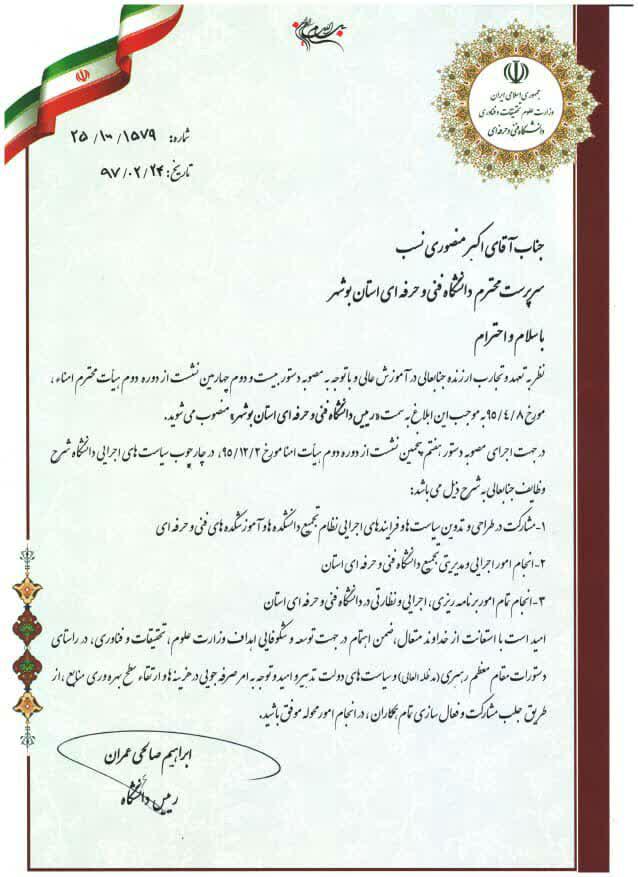 بسم الله الرحمن الرحیم
جمهوری اسلامی ایران
وزارت علوم تحقیقات و فناوری
دانشگاه فنی و حرفه ای
شماره: ۲۵/۱۰۰/۱۵۷۹
تاریخ: ۹۷/۰۲/۲۴
جناب آقای اکبر منصوری نسب
سرپرست محترم دانشگاه فنی و حرفه ای استان بوشهر
با سلام و احترام
نظر به تعهد و تجارب ارزنده جنابعالی در آموزش عالی و با توجه به مصوبه دستور بیست و دوم چهارمین نشست از دوره دوم هیأت محترم امناء ،
مورخ ۹۵/۴/۸ به موجب این ابلاغ به سمت «رییس دانشگاه فنی و حرفه ای استان بوشهر» منصوب می شوید.
در جهت اجرای مصوبه دستور هفتم پنجمین نشست از دوره دوم هیأت امنا مورخ ۹۵/۱۲/۲، در چارچوب سیاست های اجرایی دانشگاه شرح
وظایف جنابعالی به شرح ذیل می باشد:
۱-مشارکت در طراحی و تدوین سیاست ها و فرایندهای اجرایی نظام تجمیع دانشکده ها و آموزشکده های فنی و حرفه ای
۲-انجام امور اجرایی و مدیریتی تجمیع دانشگاه فنی و حرفه ای استان
۳-انجام تمام امور برنامه ریزی، اجرایی و نظارتی در دانشگاه فنی و حرفه ای استان
امید است با استعانت از خداوند متعال، ضمن اهتمام در جهت توسعه و شکوفایی اهداف وزارت علوم، تحقیقات و فناوری، در راستای
دستورات مقام معظم رهبری (مدظله العالی) و سیاست های دولت تدبیر و امید و توجه به امر صرفه جویی در هزینه ها و ارتقاء سطح بهره وری منابع ، از
طریق جلب مشارکت و فعال سازی تمام همکاران، در انجام امور محوله موفق باشید.
ابراهیم صالحی عمران
رییس دانشگاه